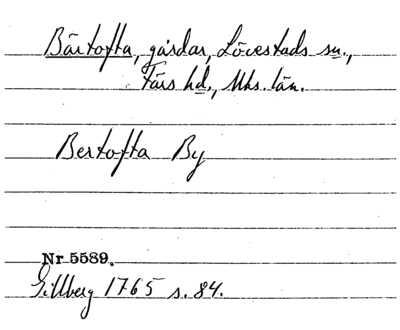 Bärtofta, gårdar, Lövestads sn.,
Färs hd., Mhs. län.
Bertofta By
Nr 5589.
Gillberg 1765 s. 84.